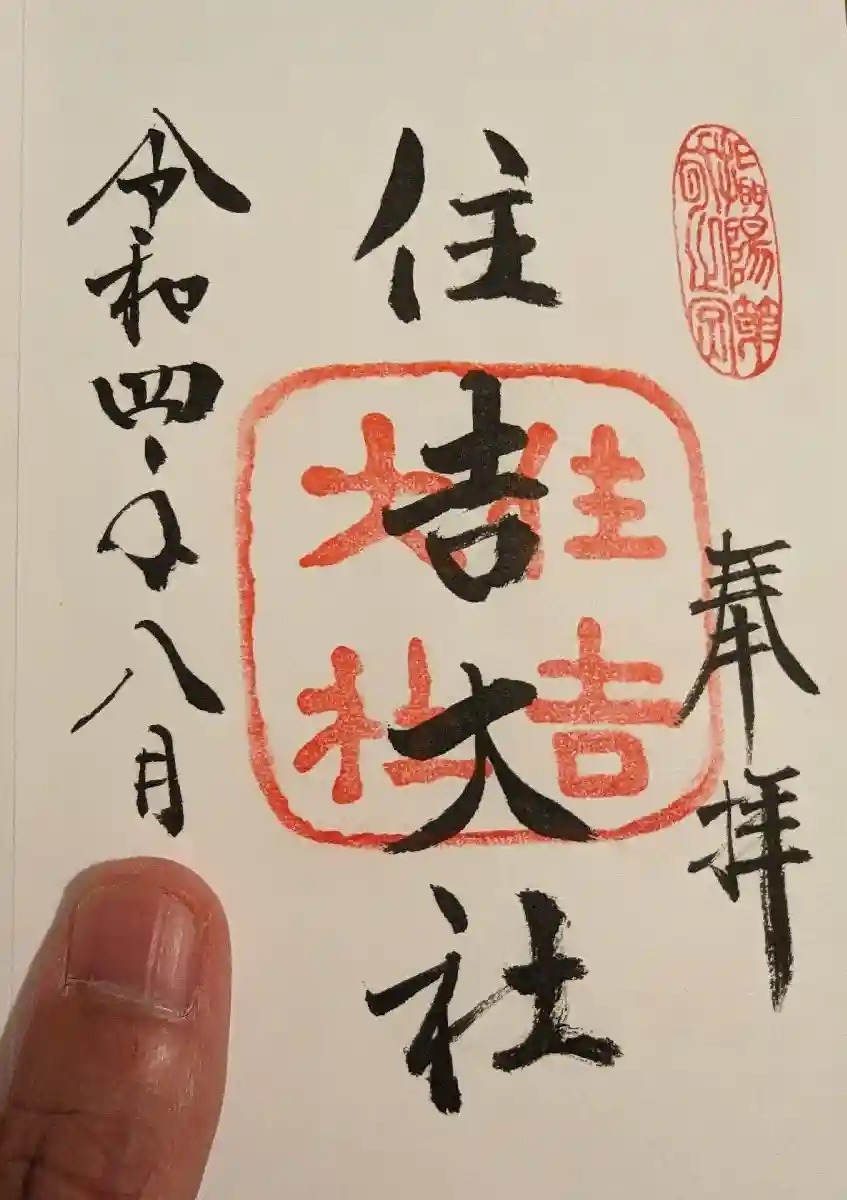 奉拝
住吉大社
住吉
大社
令和四年八月